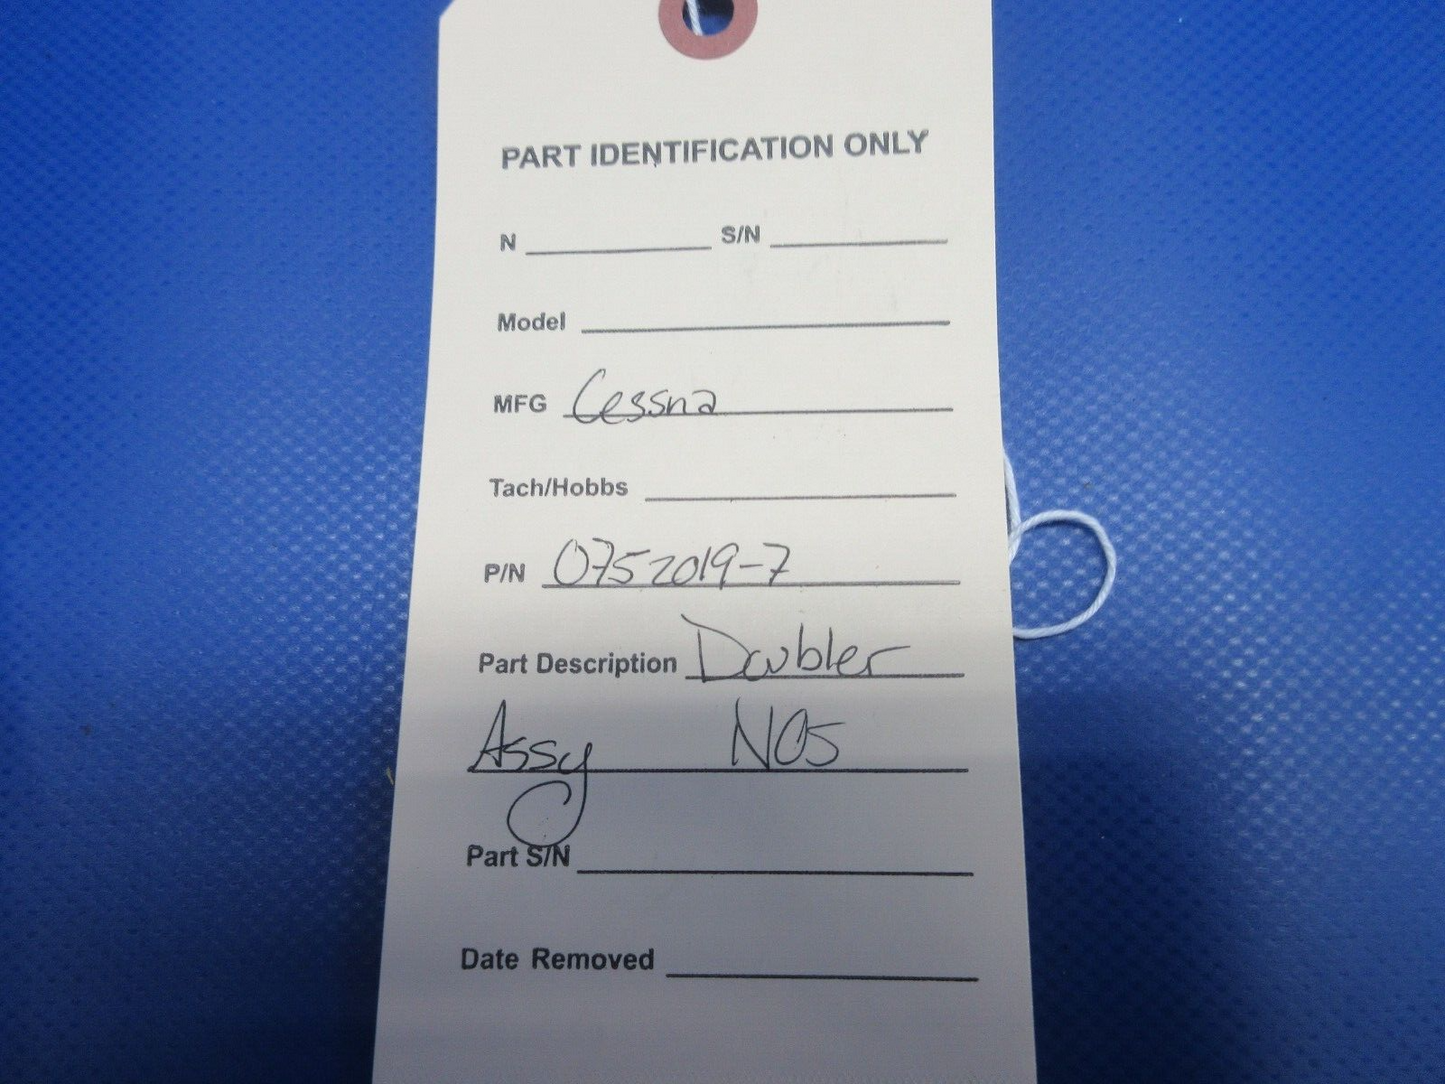 PART IDENTIFICATION ONLY
N S/N
Model
MFG Cessna
Tach/Hobbs
P/N 0752019-7
Part Description Doubler
Assy NOS
Part S/N
Date Removed